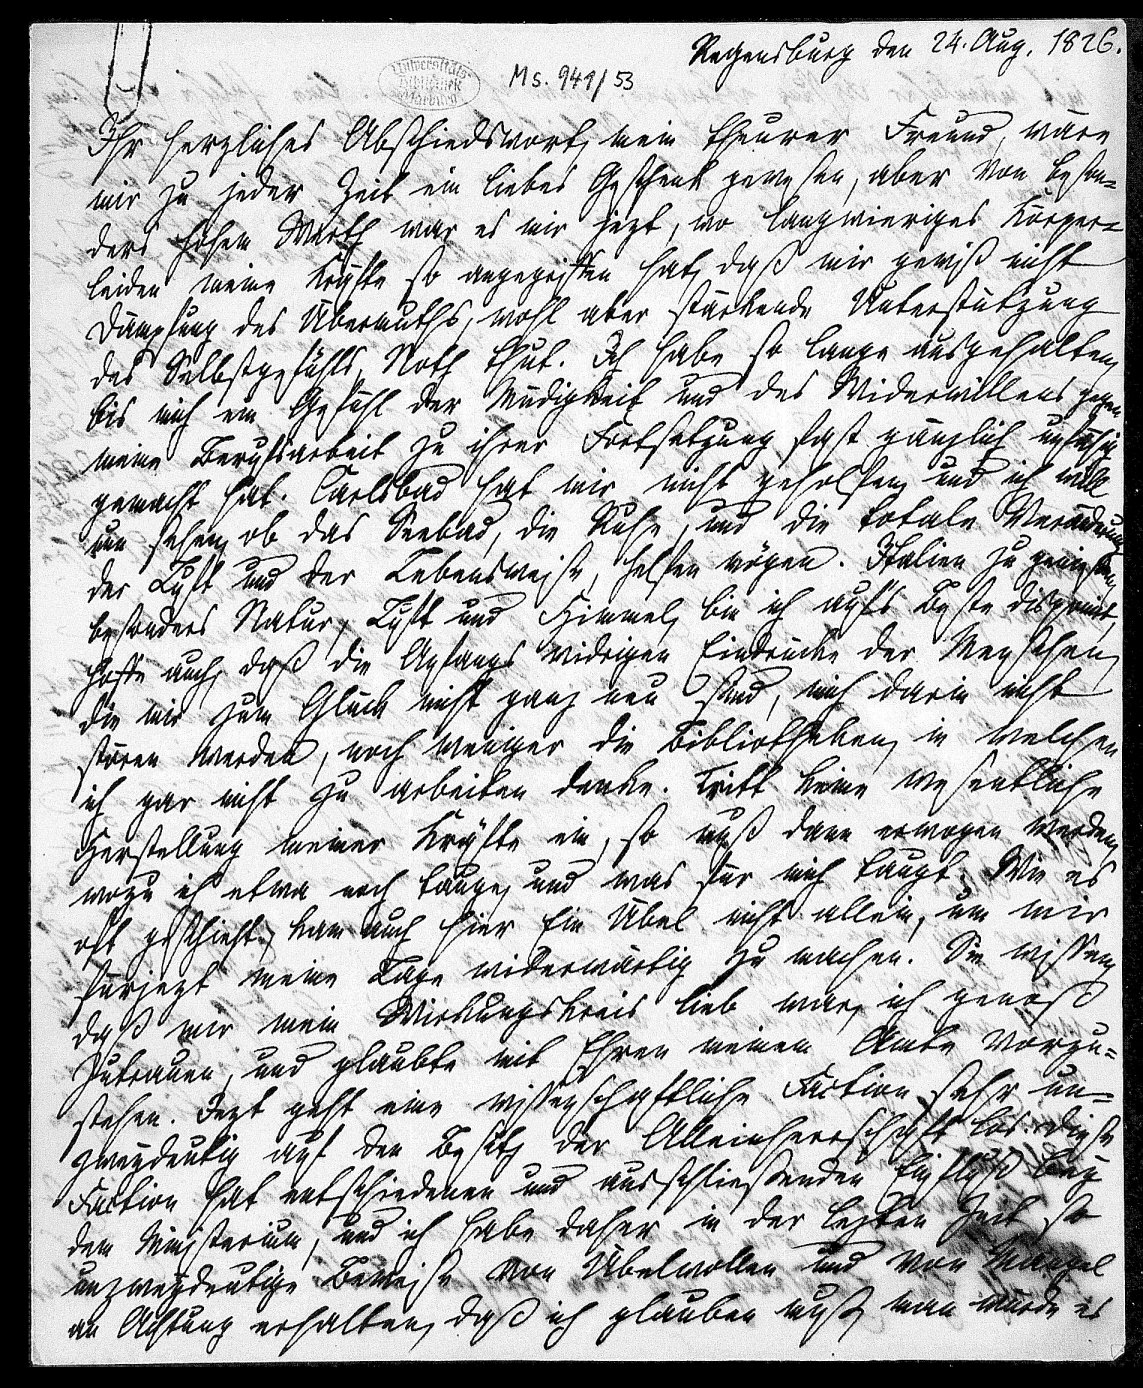 Regensburg den 24. Aug. 1826.
Universitäts
Bibliothek
Marburg
Ms. 949/53
Ihr herzliches Abschiedswort, mein theurer Freund, wäre
mir zu jeder Zeit ein liebes Geschenk gewesen, aber von beson-
ders hohem Werth war es mir jezt, wo langwieriges Körper-
leiden meine Kräfte so angegriffen hat, daß mir gewiß nicht
Dämpfung des Übermuths, wohl aber stärkende Unterstützung
des Selbstgefühls, Noth thut. Ich habe so lange ausgehalten,
bis mich ein Gefühl der Müdigkeit und des Widerwillens gegen
meine Berufsarbeit zu ihrer Fortsetzung fast gänzlich unfähig
gemacht hat. Carlsbad hat mir nicht geholfen, und ich will
nun sehen, ob das Seebad, die Ruhe, und die totale Veränderung
der Luft und der Lebensweise, helfen mögen. Italien zu genießen,
besonders Natur, Luft und Himmel, bin ich aufs Beste disponirt,
hoffe auch, daß die Anfangs widrigen Eindrücke der Menschen,
die mir zum Glück nicht ganz neu sind, mich darin nicht
stören werden, noch weniger die Bibliotheken, in welchen
ich gar nicht zu arbeiten denke. Tritt keine wesentliche
Herstellung meiner Kräfte ein, so muß dann erwogen werden,
wozu ich etwa noch tauge, und was für mich taugt. Wie es
oft geschieht, kam auch hier Ein Übel nicht allein, um mir
fürjezt meine Lage widerwärtig zu machen. Sie wissen,
daß mir mein Wirkungskreis lieb war, ich genoß
Zutrauen, und glaubte mit Ehren meinem Amte vorzu-
stehen. Jezt geht eine wissenschaftliche Faction sehr un-
zweydeutig auf den Besitz der Alleinherrschaft los. diese
Faction hat entschiedenen und ausschließenden Einfluß bey
dem Ministerium, und ich habe daher in der lezten Zeit so
unzweydeutige Beweise von Übelwollen und von Mangel
an Achtung erhalten, daß ich glauben muß, man würde es